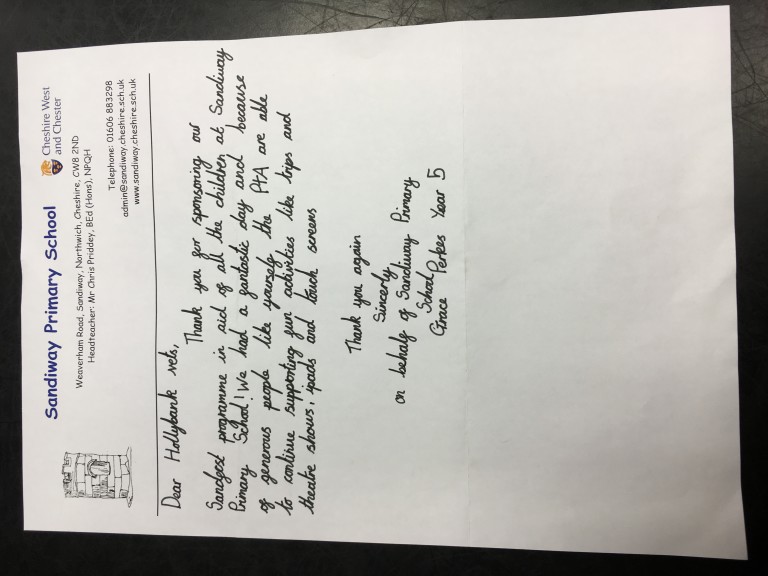 Sandiway Primary School
Cheshire West
and Chester
Weaverham Road, Sandiway, Northwich, Cheshire, CW8 2ND
Headteacher: Mr Chris Priddey, BEd (Hons), NPQH
Telephone: 01606 883298
admin@sandiway.cheshire.sch.uk
www.sandiway.cheshire.sch.uk
Dear Hollybank vets,
Thank you for sponsoring our
Sandfest programme in aid of all the children at Sandiway
Primary School! We had a fantastic day and because
of generous people like yourself the PtA are able
to continue supporting fun activities like trips and
theatre shows, ipads and touch screens
Thank you again
Sincerly
on behalf of Sandiway Primary
School
Grace Perkes Year 5